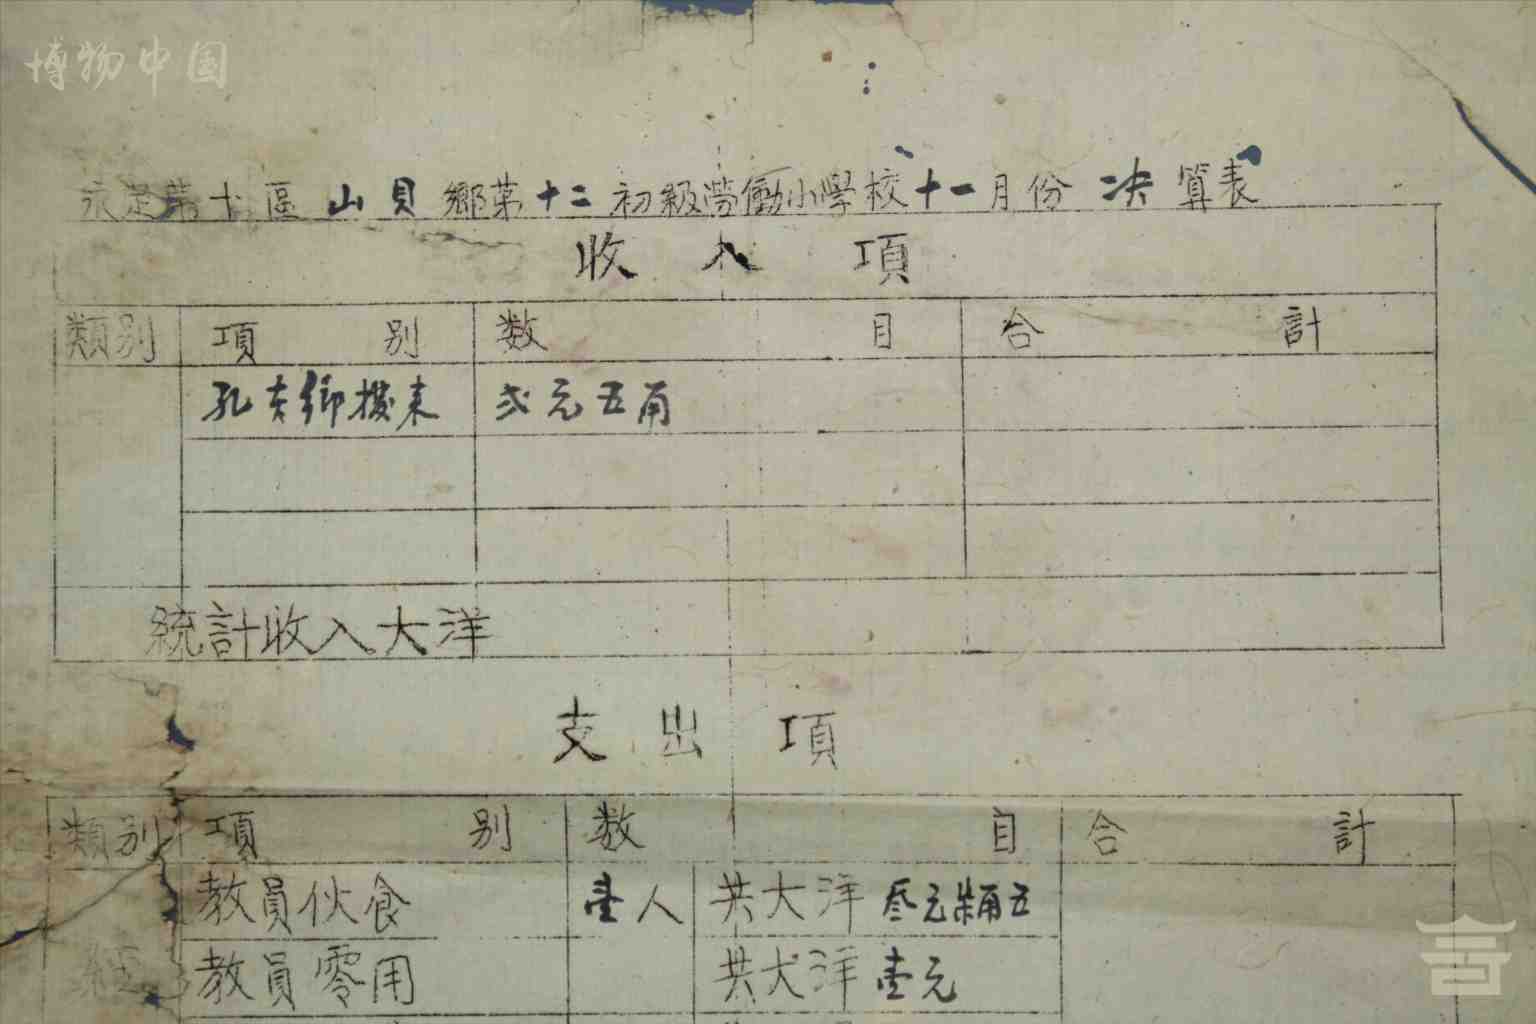 博物中国
永定第十區山貝鄉第十二初級勞働小學校十一月份決算表
收入項
類別 項別 数目 合計
孔夫鄉撥来 弍元五角
統計收入大洋
支出項
類別 項別 数目 合計
教員伙食 壹人 共大洋叁元 五
經
教員零用 共大洋壹元